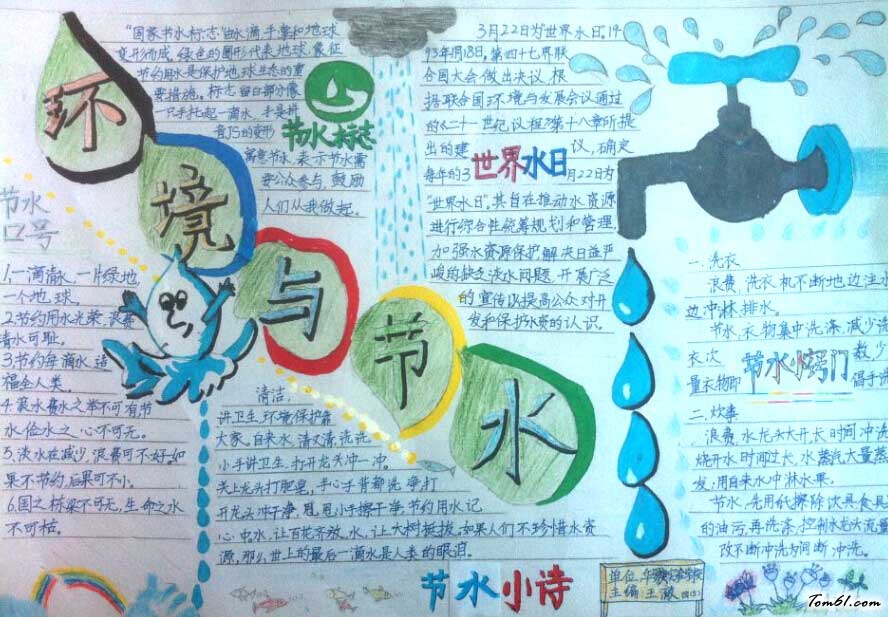 环境与节水
"国家节水标志"由水滴,手掌和地球
变形而成。绿色的圆形代表地球,象征
节约用水是保护地球生态的重
要措施。标志留白部分像
一只手托起一滴水,手是拼
音JS的变形
寓意节水,表示节水需
要公众参与,鼓励
人们从我做起。
节水标志
3月22日为"世界水日",19
93年1月18日,第四十七界联
合国大会做出决议,根
据联合国环境与发展会议通过
的《二十一世纪议程》第十八章所提
出的建议,确定
每年的3月22日为
世界水日
"世界水日"。其旨在推动水资源
进行综合性统筹规划和管理,
加强水资源保护,解决日益严
峻的缺乏淡水问题,开展广泛
的宣传以提高公众对开
发和保护水资的认识。
节水
口号
1.一滴清水,一片绿地,
一个地球。
2.节约用水光荣,浪费
清水可耻。
3.节约每滴水,造
福全人类。
4.哀水费水之举不可有,节
水俭水之心不可无。
5.淡水在减少,浪费可不好。如
果不节约,后果可不小。
6.国之栋梁不可无,生命之水
不可枯。
清洁,
讲卫生,环境保护靠
大家。自来水,清又清,洗洗
小手讲卫生,打开龙头冲一冲。
关上龙头打肥皂,手心手背都洗净,打
开龙头冲干净,甩甩小手擦干净,节约用水记
心中。水,让百花齐放,水,让大树挺拔。如果人们不珍惜水资
源,那么世上的最后一滴水是人类的眼泪。
节水小诗
一.洗衣
浪费:洗衣机不断地边注
边冲淋、排水。
节水:衣物集中洗涤,减少
衣次数,少
量衣物即倡手
节水小窍门
二.炊事
浪费:水龙头大开,长时间冲洗
烧开水时间过长,水蒸汽大量蒸
发,用自来水冲淋水果。
节水:先用纸擦除饮具食具
的油污,再洗涤;控制水龙头流量
改不断冲洗为间断冲洗。
单位:
主编:王
Tom61.com